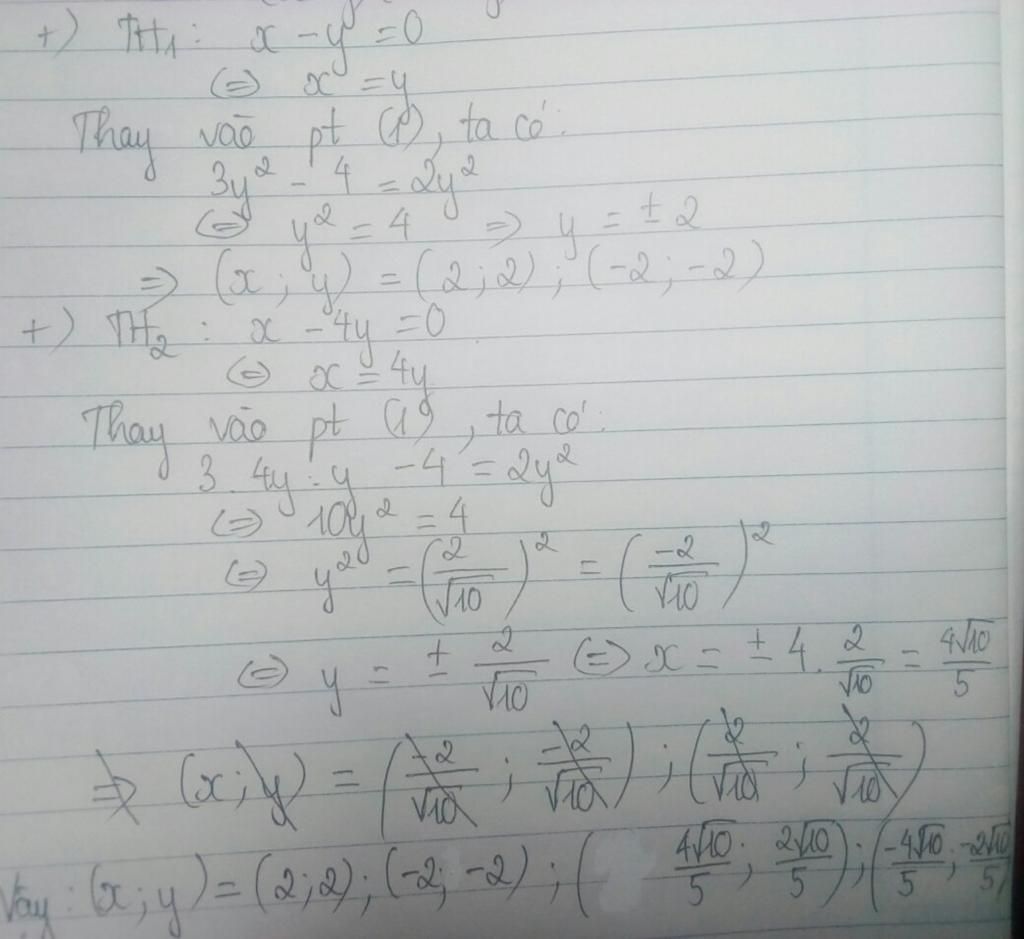 +) TH1: x - y = 0
⇔ x = y
Thay vào pt (1), ta có:
3y² - 4 = 2y²
⇔ y² = 4 ⇒ y = ± 2
⇒ (x; y) = (2; 2); (-2; -2)
+) TH2: x - 4y = 0
⇔ x = 4y
Thay vào pt (1), ta có:
3. 4y . y - 4 = 2y²
⇔ 10y² = 4
⇔ y² = (2/√10)² = (-2/√10)²
⇔ y = ± 2/√10 ⇔ x = ± 4. 2/√10 = 4√10/5
⇒ (x; y) = (-2/√10; -2/√10); (2/√10; 2/√10)
Vậy: (x; y) = (2; 2); (-2; -2); (4√10/5; 2√10/5); (-4√10/5; -2√10/5)